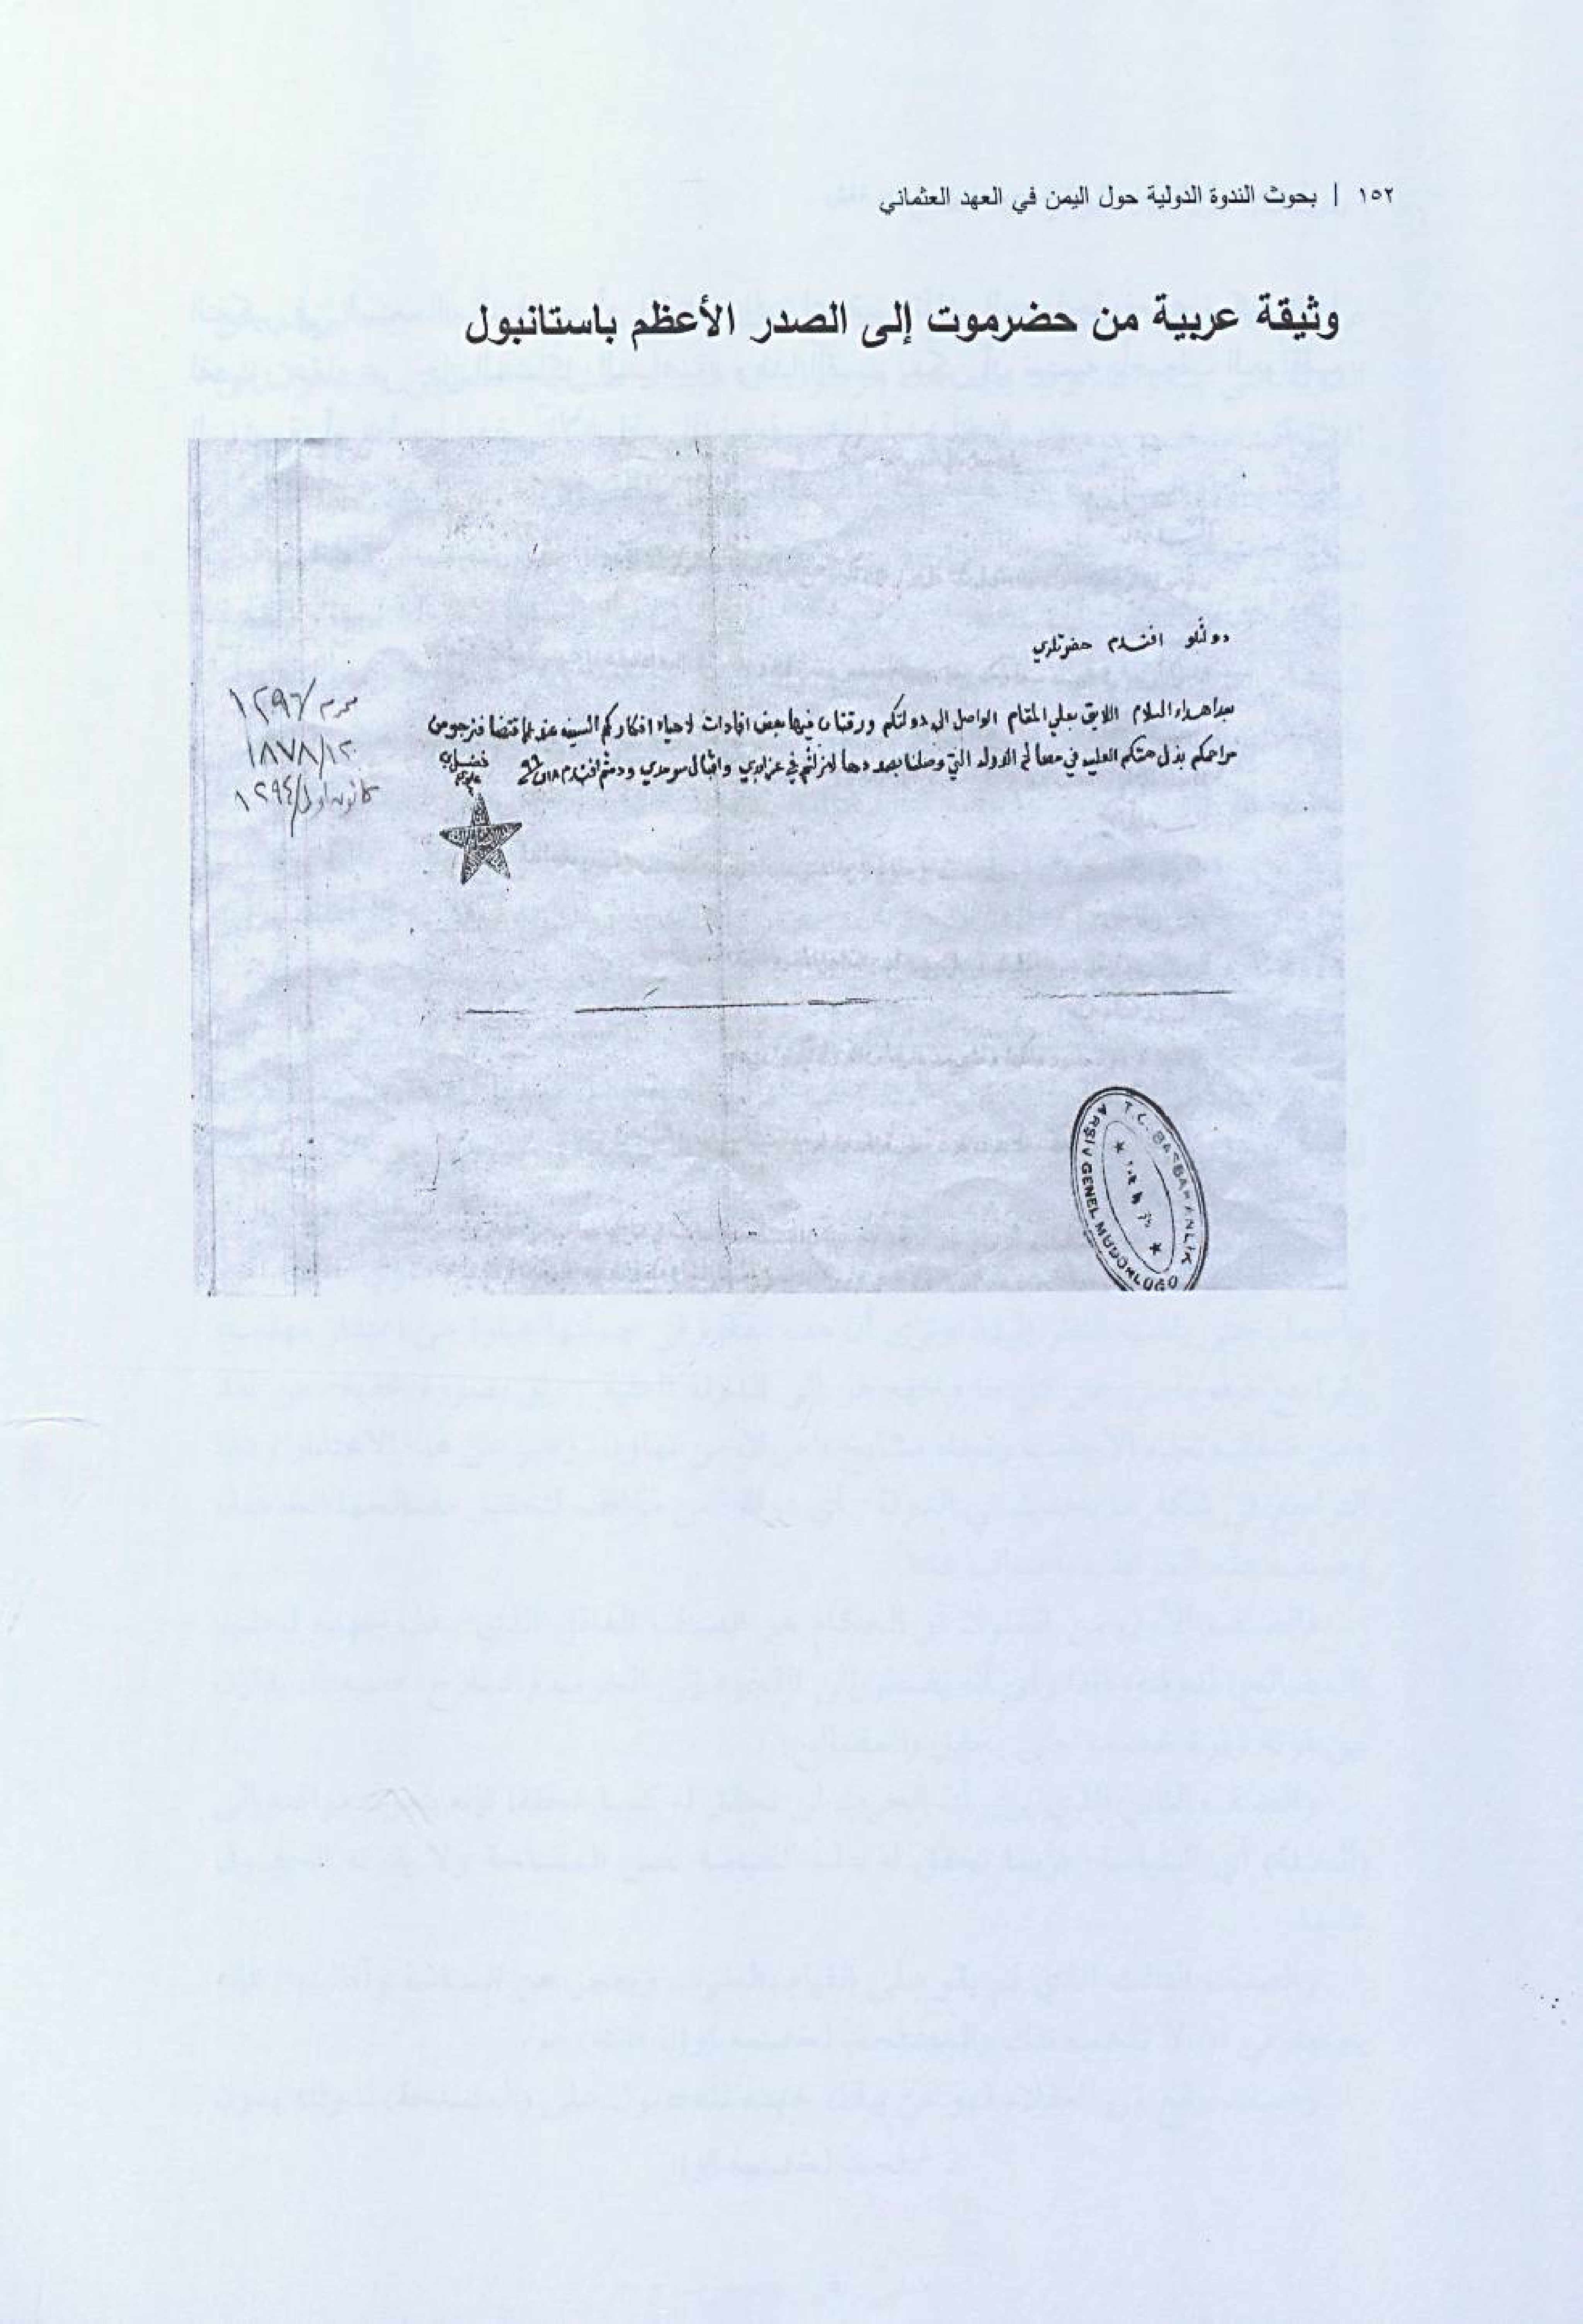 ١٥٢ | بحوث الندوة الدولية حول اليمن في العهد العثماني
وثيقة عربية من حضرموت إلى الصدر الأعظم باستانبول
دولتلو افندم حضرتلري
بعد اهداء السلام اللايق بعلي المقام الواصل الى دولتكم ورقتان فيها بعض افادات لاحياء افكاركم السنيه عند الاقتضا فنرجو من
مراحمكم بذل همتكم العليه في مصالح الدوله التي وصلنا بصددها لازلتم في عز ابدي واقبال سرمدي ودمتم افندم
فضل بن
علوي
محرم /١٢٩٦
١٨٧٨/١٢
كانون اول/١٢٩٤
T.C. BAŞBAKANLIK
ARŞİV GENEL MÜDÜRLÜĞÜ